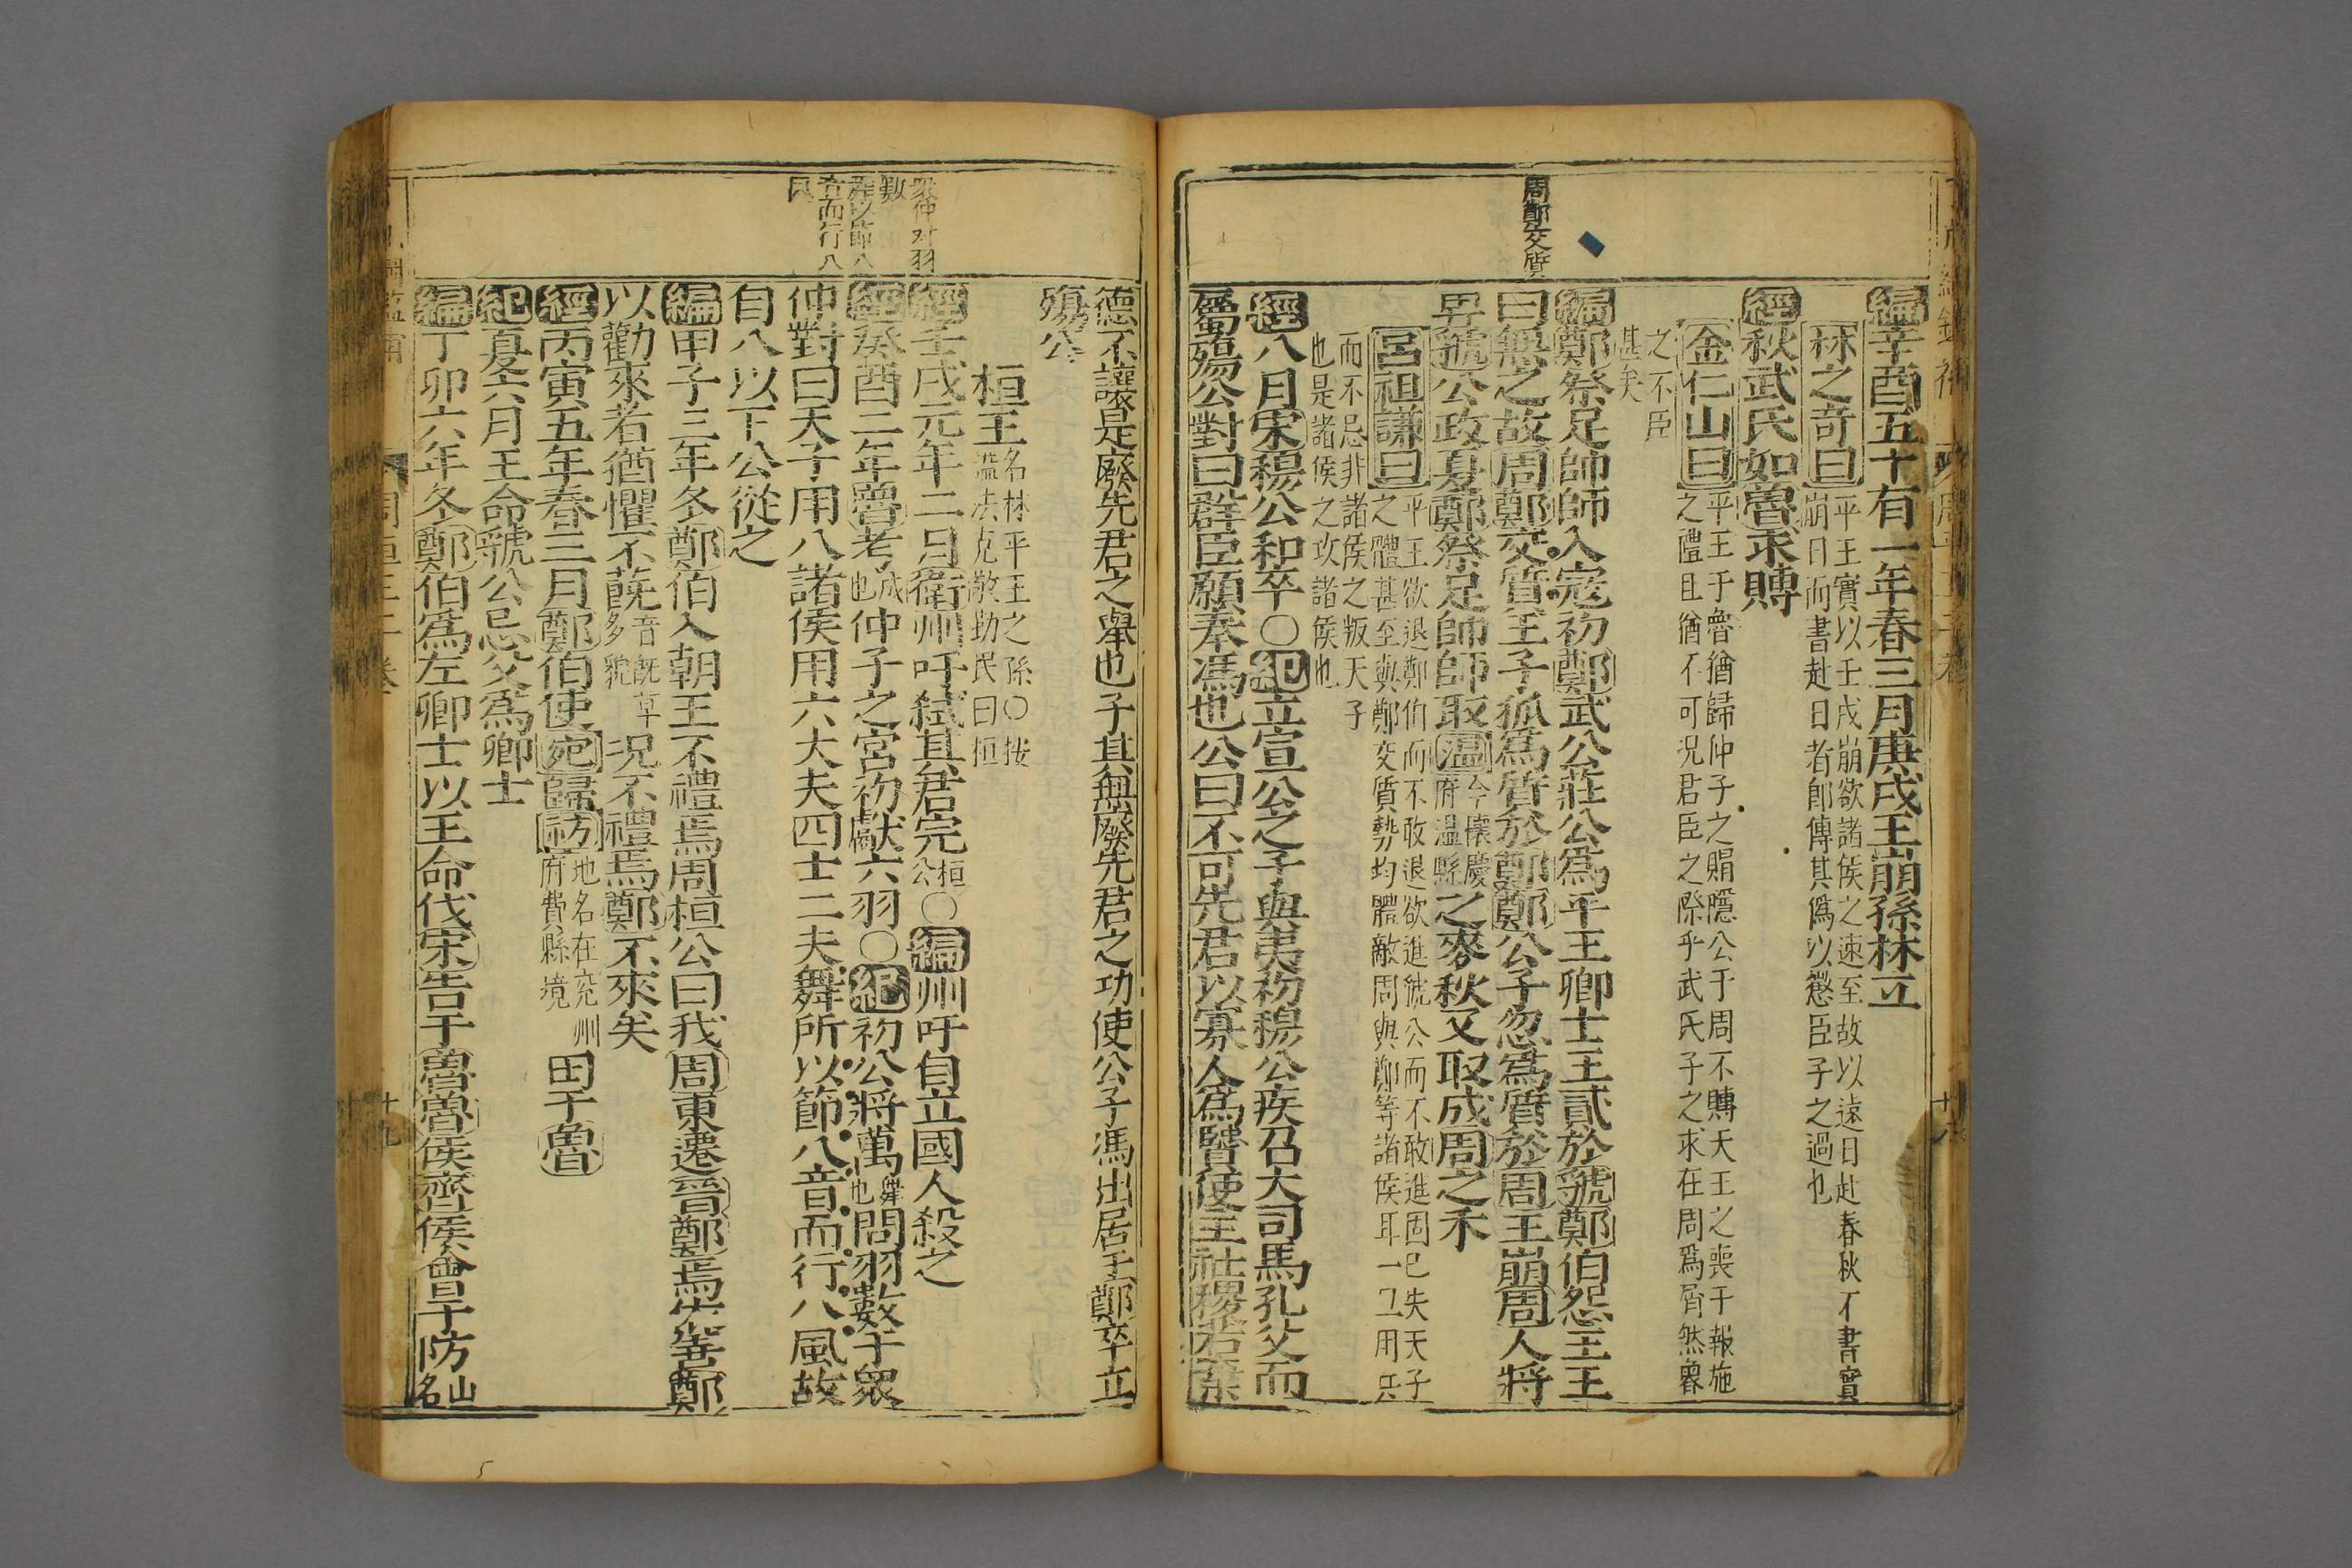 周鄭交質
編辛酉五十有一年春三月庚戌王崩孫林立
林之奇曰平王實以壬戌崩欲諸侯之速至故以遠日赴春秋不書實
崩日而書赴日者即傳其僞以懲臣子之過也
經秋武氏如魯求賻
金仁山曰平王于魯猶歸仲子之賵隱公于周不賻天王之喪于報施
之禮且猶不可況君臣之際乎武氏子之求在周爲屑然魯
之不臣
甚矣
編鄭祭足帥師入寇初鄭武公莊公爲平王卿士王貳於虢鄭伯怨王王
曰無之故周鄭交質王子狐爲質於鄭鄭公子忽爲質於周王崩周人將
畀虢公政夏鄭祭足帥師取溫今懷慶府溫縣之麥秋又取成周之禾
呂祖謙曰平王欲退鄭伯而不敢退欲進虢公而不敢進固已失天子
之體甚至與鄭交質勢均體敵周與鄭等諸侯耳一旦用兵
而不忌非諸侯之叛天子
也是諸侯之攻諸侯也
經八月宋穆公和卒○紀立宣公之子與夷初穆公疾召大司馬孔父而
屬殤公對曰群臣願奉馮也公曰不可先君以寡人爲賢使主社稷若棄
德不讓是廢先君之舉也子其無廢先君之功使公子馮出居于鄭卒立
殤公
桓王名林平王之孫○按
謚法克敬勤民曰桓
衆仲對羽
數
舞以節八
音而行八
風
經壬戌元年二月衛州吁弑其君完桓公○編州吁自立國人殺之
經癸酉二年魯考成也仲子之宮初獻六羽○紀初公將萬舞也問羽數于衆
仲對曰天子用八諸侯用六大夫四士二夫舞所以節八音而行八風故
自八以下公從之
編甲子三年冬鄭伯入朝王不禮焉周桓公曰我周東遷晉鄭焉依善鄭
以勸來者猶懼不蔇音旣草多貌況不禮焉鄭不來矣
經丙寅五年春三月鄭伯使宛歸祊地名在兖州府費縣境田于魯
紀夏六月王命虢公忌父爲卿士
編丁卯六年冬鄭伯爲左卿士以王命伐宋告于魯魯侯齊侯會于防山名
十八
十九